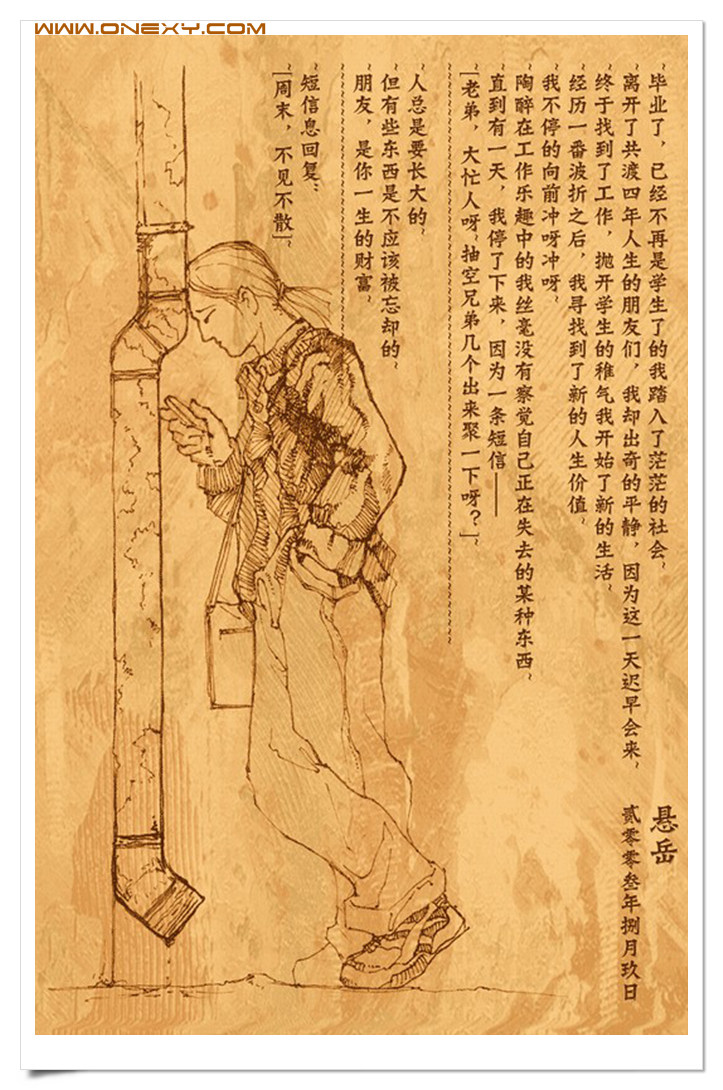 WWW.ONEXY.COM
毕业了，已经不再是学生了的我踏入了茫茫的社会~
离开了共渡四年人生的朋友们，我却出奇的平静，因为这一天迟早会来~
终于找到了工作，抛开学生的稚气我开始了新的生活~
经历一番波折之后，我寻找到了新的人生价值~
我不停的向前冲呀冲呀~
陶醉在工作乐趣中的我丝毫没有察觉自己正在失去的某种东西~
直到有一天，我停了下来，因为一条短信——
[老弟，大忙人呀~抽空兄弟几个出来聚一下呀？]~
人总是要长大的~
但有些东西是不应该被忘却的~
朋友，是你一生的财富~
短信息回复：
[周末，不见不散]~
悬岳
贰零零叁年捌月玖日